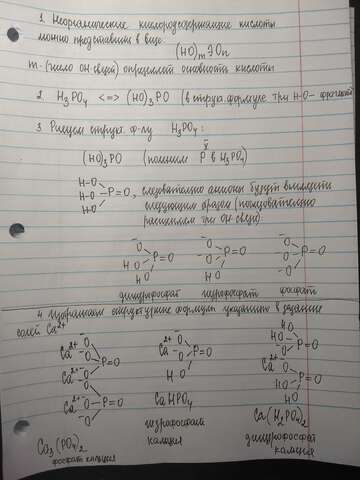 1. Неорганические кислородсодержащие кислоты
можно представить в виде:
(HO)mЭOn
m - (число OH связей) определяет основность кислоты
2. H3PO4 <=> (HO)3PO (в структ. формуле три H-O- фрагмента)
3. Рисуем структ. ф-лу H3PO4:
(HO)3PO (помним V P в H3PO4)
H-O
H-O P=O, следовательно анионы будут выглядеть
H-O следующим образом (последовательно
расщепляем три OH связи).
-O -O -O
HO P=O -O P=O -O P=O
HO HO -O
дигидрофосфат гидрофосфат фосфат
4. Изображаем структурные формулы указанных в задании
солей Ca2+
-O -O HO
Ca2+ -O P=O Ca2+ -O P=O HO P=O
-O HO -O
Ca2+ Ca2+
-O CaHPO4 -O
Ca2+ -O P=O гидрофосфат HO P=O
-O кальция HO
Ca3(PO4)2 Ca(H2PO4)2
фосфат кальция дигидрофосфат
кальция